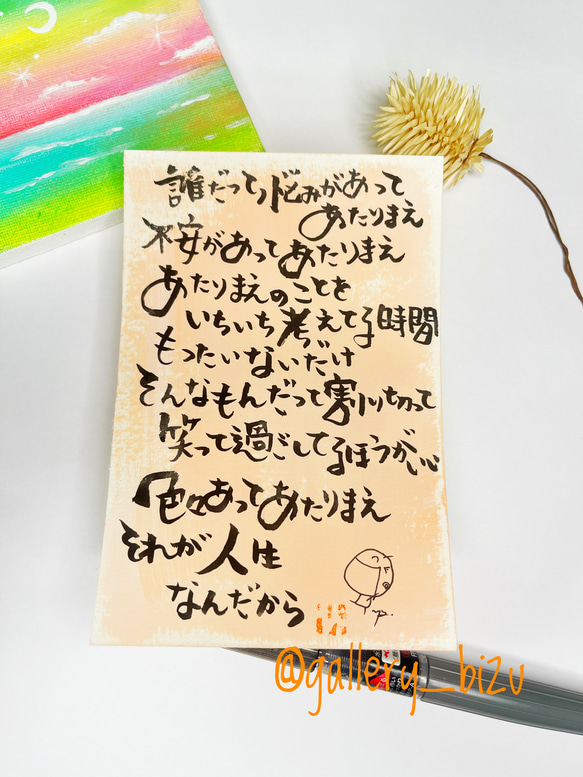 誰だって悩みがあって
あたりまえ
不安があってあたりまえ
あたりまえのことを
いちいち考えてる時間
もったいないだけ
そんなもんだって割り切って
笑って過ごしてるほうがいい
色々あってあたりまえ
それが人生
なんだから
@gallery_bizu